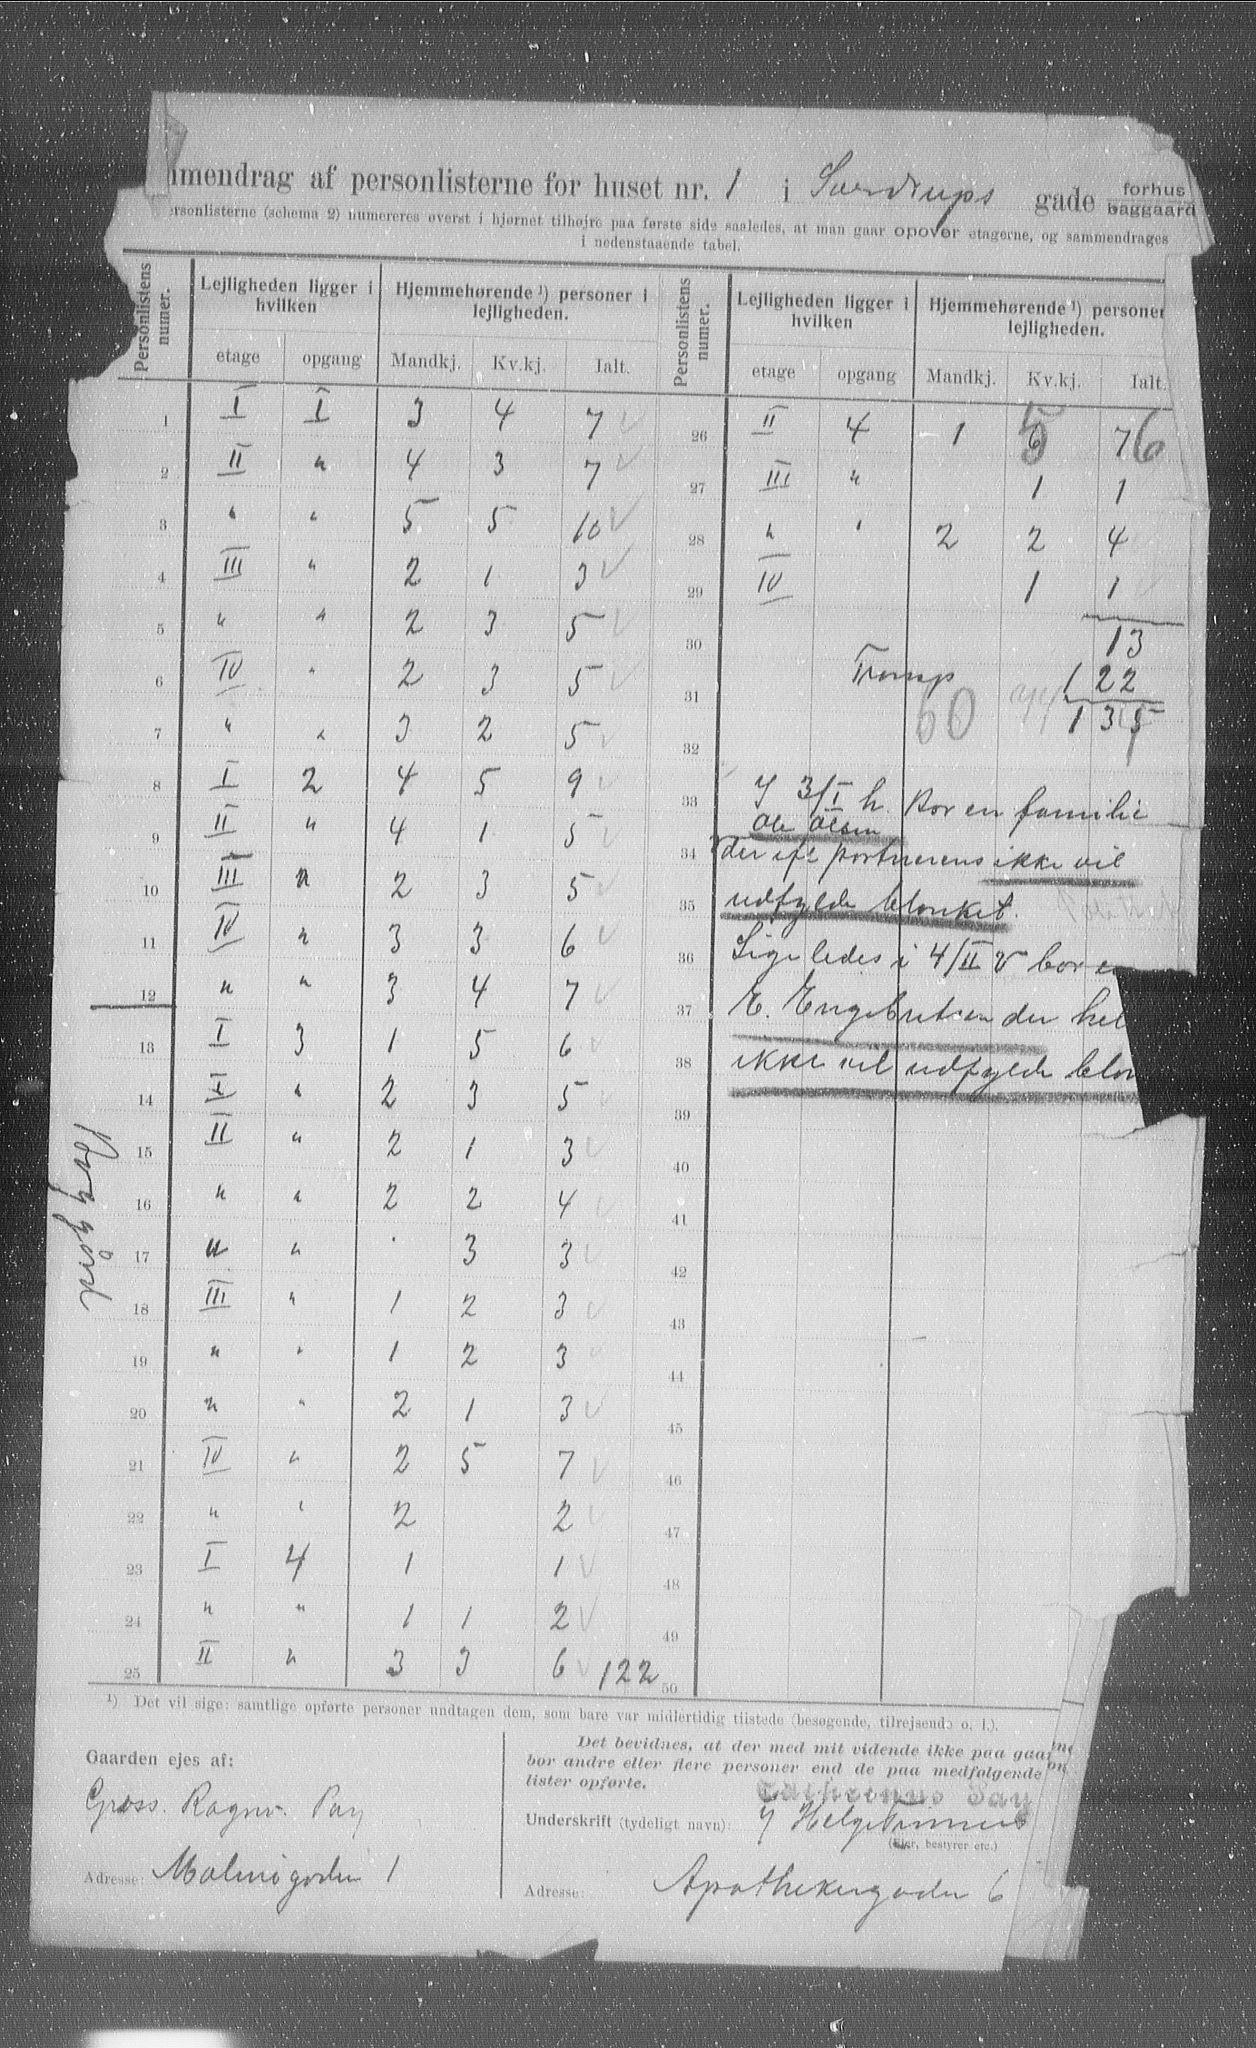 mmendrag af personlisterne for huset nr. 1 i Sverdrups gade forhus baggaard
ersonlisterne (schema 2) numereres øverst i hjørnet tilhøjre paa første side saaledes, at man gaar opover etagerne, og sammendrages
i nedenstaaende tabel.
Personlistens numer. Lejligheden ligger i hvilken Hjemmehørende ¹) personer i lejligheden. Personlistens numer. Lejligheden ligger i hvilken Hjemmehørende ¹) personer lejligheden.
etage opgang Mandkj. Kv.kj. Ialt. etage opgang Mandkj. Kv.kj. Ialt.
1 I I 3 4 7 ✓ 26 II 4 1 6 5 7 6
2 II " 4 3 7 ✓ 27 III " 1 1
3 " " 5 5 10 ✓ 28 " " 2 2 4
4 III " 2 1 3 ✓ 29 IV 1 1
5 " " 2 3 5 ✓ 30 13
6 IV " 2 3 5 ✓ 31 Transp 122
7 " " 3 2 5 ✓ 32 60 135
8 I 2 4 5 9 ✓ 33 I 3/I h. bor en familie
9 II " 4 1 5 ✓ Ole Olsen
10 III " 2 3 5 ✓ 34 der ifl portnerens ikke vil
11 IV " 3 3 6 ✓ 35 udfylde blanket.
12 " " 3 4 7 ✓ 36 Ligeledes i 4/II v bor e
13 I 3 1 5 6 ✓ 37 E. Engebretsen der hel
14 I " 2 3 5 ✓ 38 ikke vil udfylde blan
15 II " 2 1 3 ✓ 39
16 " " 2 2 4 ✓ 40
17 " " 3 3 ✓ 41
18 III " 1 2 3 ✓ 42
19 " " 1 2 3 ✓ 43
20 " " 2 1 3 ✓ 44
21 IV " 2 5 7 ✓ 45
22 " " 2 2 ✓ 46
23 I 4 1 1 ✓ 47
24 " " 1 1 2 ✓ 48
25 II " 3 3 6 ✓ 122 49
50
Baggård
¹) Det vil sige: samtlige opførte personer undtagen dem, som bare var midlertidig tilstede (besøgende, tilrejsende o. l.).
Gaarden ejes af:
Gross. Ragnv. Pay
Adresse: Malmøgaden 1
Det bevidnes, at der med mit vidende ikke paa gaar
bor andre eller flere personer end de paa medfølgende
lister opførte.
Underskrift (tydeligt navn):
(Ejer, bestyrer etc.)
Adresse: Apothekergaden 6